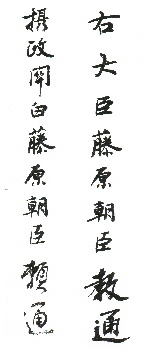 右大臣藤原朝臣教通
摂政関白藤原朝臣頼通